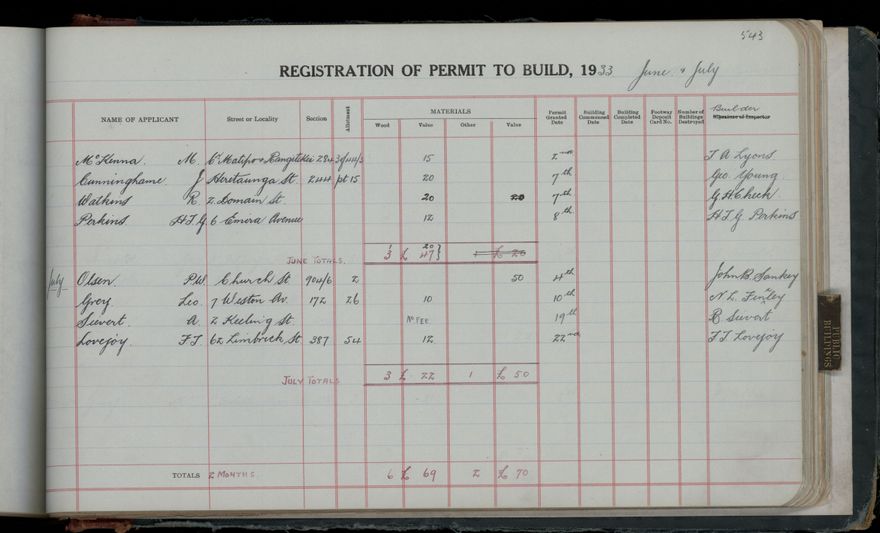 543
REGISTRATION OF PERMIT TO BUILD, 1933 June & July
NAME OF APPLICANT Street or Locality Section Allotment MATERIALS Wood Value Other Value Permit Granted Date Building Commenced Date Building Completed Date Footway Deposit Card No. Number of Buildings Destroyed Builder
McKenna. M. Cr Matipo & Rangitikei 284 15 2nd T A Lyons
Cunninghame J Heretaunga St. 244 pt 15 20 7th Geo. Young
Watkins R. 2 Domain St. 20 20 7th G H Cheek
Perkins H.T.G. 6 Emira Avenue 12 8th H T G Perkins
1 20
JUNE TOTALS. 3 £ 47 } 1 £ 20
July Olsen P.W. Church St 904/6 2 50 4th John B. Sankey
Grey Leo. 7 Weston Av. 172 26 10 10th N L. Finley
Sievert A. 2 Keeling St. No FEE 19th R. Sievert
Lovejoy F.T. 62 Limbrick St 387 54 12 22nd F T Lovejoy
JULY TOTALS 3 £ 22 1 £ 50
TOTALS 2 MONTHS. 6 £ 69 2 £ 70
PUBLIC BUILDINGS